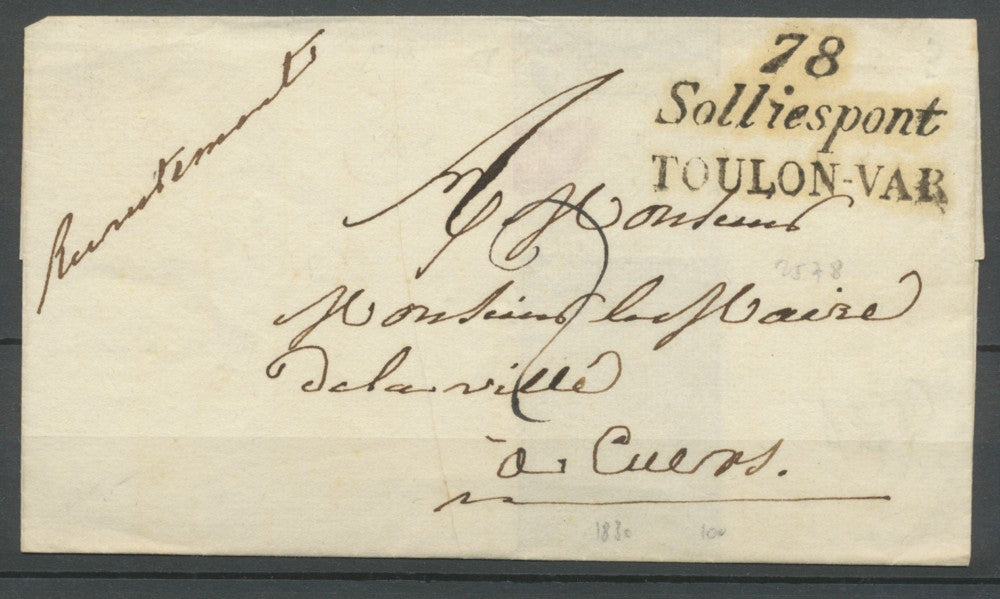 78
Solliespont
TOULON-VAR
Recrutement
A Monsieur
2578
Monsieur le Maire
de la ville
à Cuers.
1830 100